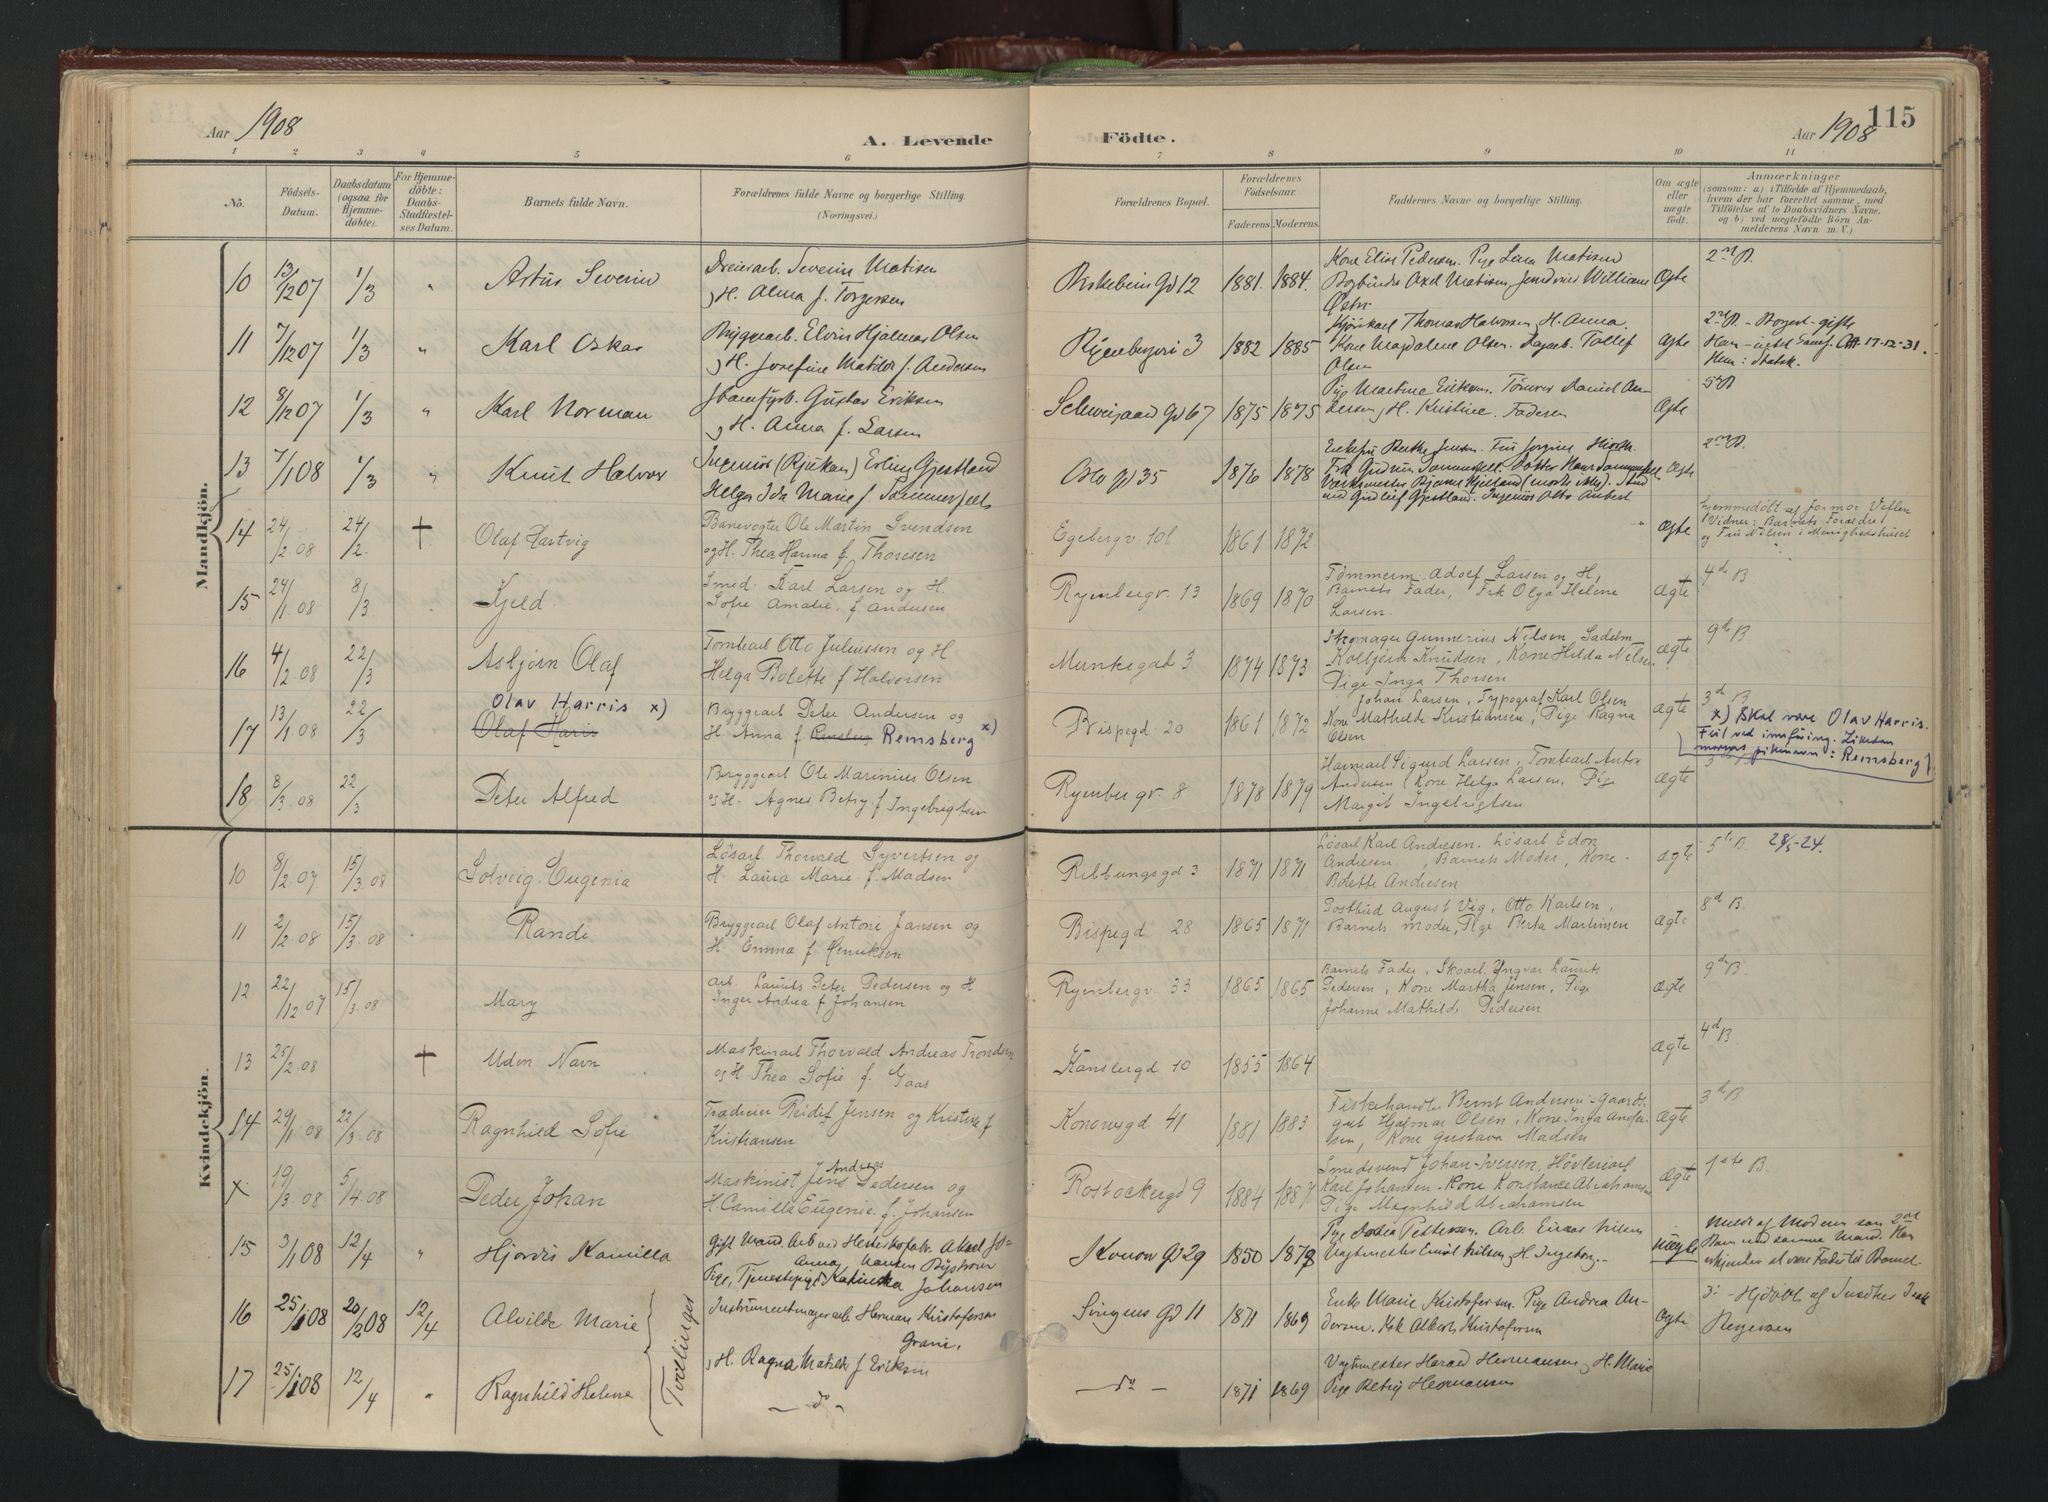 115
Aar 1908
A. Levende Födte.
Aar 1908
1 2 3 4 5 6 7 8 9 10 11
No.
Födsels-Datum.
Daabsdatum (ogsaa for Hjemmedöbte).
For Hjemmedöbte: Daabs-Stadfæstelses Datum.
Barnets fulde Navn.
Forældrenes fulde Navne og borgerlige Stilling. (Næringsvei.)
Forældrenes Bopæl.
Forældrenes Födselsaar.
Faderens. Moderens.
Faddernes Navne og borgerlige Stilling.
Om ægte eller uægte födt.
Anmærkninger
(saasom: a) i Tilfælde af Hjemmedaab, hvem der har forrettet samme, med Tilföielse af to Daabsvidners Navne, og b) ved uægtefödte Börn Anmelderens Navn m. V.)
Mandkjön.
10 13/12 07 1/3 " Artur Severin
Dreierarb. Severin Matisen
og H. Alma f. Torgersen
Birkebein gd 12 1881. 1884.
Kone Elise Pedersen. Pige Lina Matisen
Bogbinder Axel Matisen, William
Ægte 2den B.
11 7/12 07 1/3 " Karl Oskar
Bryggearb. Hjalmar Olsen
og H. Josefine Matilde f. Andersen
Ryenbergvei 3 1882 1885
Thomas Halvorsen, H. Anna.
Kone Magdalene Olsen. Tollef
Olsen
Ægte 2den B. - Borgerl. gifte
17-12-31.
12 8/12 07 1/3 " Karl Norman
Gustav Eriksen
og H. Anna f. Larsen
Schweigaard gd 67 1875 1875
Pige Martine Eriksen. Tömrer Daniel Andersen, H. Kristine. Faderen
Ægte 5te B
13 7/1 08 1/3 " Knut Halvor
Ingeniör (Rjukan) Erling Gjestland
Helga Ida Marie f. Sommerfelt
Oslo gd 35 1876 1878
Ægte 2den B.
14 24/2 08 24/2. † Olaf Hartvig
Banevogter Ole Martin Svendsen
og H. Thea Hanna f. Thoresen
Egebergv. 10b 1861 1872
ægte Hjemmedöbt af Jormor
Vidner: Barnets Forældre
og Fru Nilsen i Menighedshuset
15 24/1 08 8/3 Kjeld.
Smed. Karl Larsen og H.
Sofie Amalie, f. Andersen
Ryenbergv. 13 1869 1870
Tömmerm. Adolf Larsen og H,
Barnets Fader, Frk Olga Helene
Larsen.
ægte 4de B
16 4/2 08 22/3 Asbjörn Olaf
Tomtearb Otto Juliussen og H
Helga Bolette f Halvorsen
Munkegad 3 1874 1873
Skomager Gunnerius Nilsen, Sadelm
Kolbjörn Knudsen, Kone Hilda Nilsen
Pige Inga Thorsen
ægte 9de B.
17 13/1 08 22/3 Olav Harris x)
Olaf Haris
Bryggearb Peter Andersen og
H. Anna f Remsberg x)
Bispegd 20 1861 1872
Johan Larsen, Typograf Karl Olsen
Kone Mathilde Kristiansen, Pige Ragna
Olsen
ægte 3d B
x) Skal være Olav Harris.
Feil ved innföring. Likesaa
morens pikenavn: Remsberg
18 8/3 08 22/3 Peter Alfred
Bryggearb Ole Marinius Olsen
og H. Agnes Betsy f Ingebrigtsen
Ryenbergv. 8 1878 1879
Havnearb Sigurd Larsen, Tomtearb Anton
Andersen, Kone Helga Larsen, Pige
Margit Ingebrigtsen
ægte
Kvindekjön.
10 8/2 07 15/3 08 Solveig Eugenia
Lösarb. Thorvald Syvertsen og
H. Laura Marie f Madsen
Ribbungsgd 3 1871 1871
Lösarb Karl Andresen. Lösarb Edon
Andresen, Barnets Moder, Kone
Bolette Andresen
ægte 5te B. 28/5-24.
11 2/2 08 15/3 08 Randi
Bryggearb Olaf Antoni Jansen og
H. Emma f Henriksen
Bispegd 28 1865 1871
Postbud August Vig, Otto Karlsen,
Barnets moder, Pige Berta Martinsen
ægte 8d B.
12 22/12 07 15/3 08 Mary
Arb. Laurits Peter Pedersen og H
Inger Andrea f Johansen
Ryenbergv. 33 1865 1865
Barnets Fader, Skoarb. Yngvar Laurits
Pedersen, Kone Martha Jensen, Pige
Johanne Mathilde Pedersen
ægte 9d B.
13 25/2 08 † Uden Navn
Maskinarb Thorvald Andreas Trondsen
og H Thea Sofie f. Gaas
Kanslergd 10 1855 1864
ægte 4d B.
14 29/1 08 22/3 08 Ragnhild Sofie
Trædreier Reidef Jensen og Kristine f
Kristiansen
Konowsgd 41 1881 1883
Fiskehandler Bernt Andersen, Gaardsgut Hjalmar Olsen, Kone Inga Andersen, Kone Gustava Madsen
ægte 3d B
x 19/3 08 5/4 08 Peder Johan
Maskinist Jens Andreas Pedersen og
H. Camilla Eugenie f. Johansen
Rostockergd 9 1884 1887
Smedsvend Johan Iversen, Hövleriarb
Karl Johansen, Kone Konstance Abrahamsen
Pige Magnhild Abrahamsen
ægte 1ste B.
15 3/1 08 12/4 " Hjördis Kamilla
Gift Mand. Arb ved Hesteskofabr. Aksel
Pige, Tjenestepige Anna Katinka Johansen
Konow gd 29 1850
Pige Pettersen. Arb. Einar Nilsen
Vagtmester Emil Nilsen, H Ingeborg.
uægte Meldt af Moderen som 2det
Barn med samme Mand. Han
erkjender at være Fader til Barnet.
16 25/1 08 20/2 08 12/4 Alvilde Marie
Instrumentmagerarb. Herman Kristofersen
Grani.
og H. Ragna Matilde f Eriksen
Sörgens gd 11 1871 1869
Enke Marie Kristofersen. Pige Andrea Andersen. Albert Kristofersen
Ægte
17 25/1 08 12/4 " Ragnhild Helene
Tvillinger
— do —
— do — 1871 1869
Vagtmester Harald Hermansen, H. Marie
Pige Betsy Hermansen